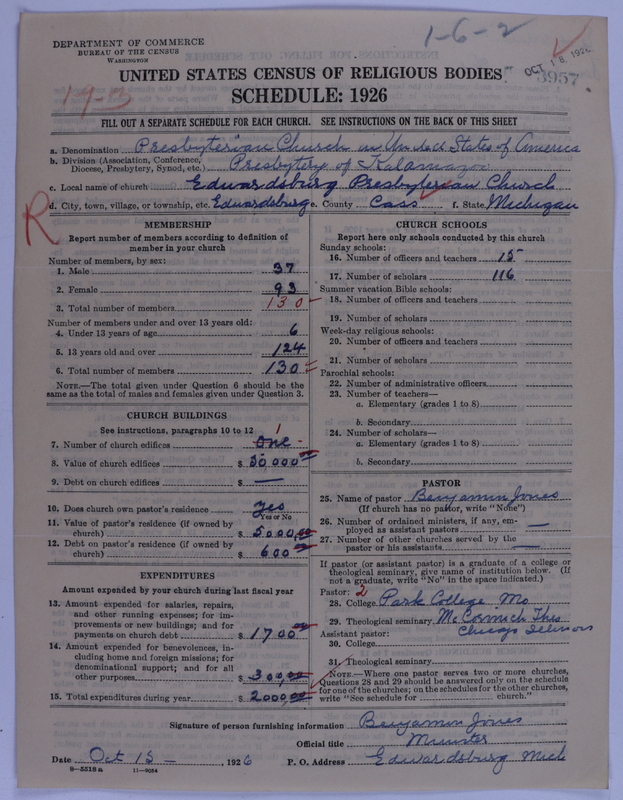 DEPARTMENT OF COMMERCE
BUREAU OF THE CENSUS
WASHINGTON
1-6-2
OCT 18 1926
3957
19-3
UNITED STATES CENSUS OF RELIGIOUS BODIES
SCHEDULE: 1926
FILL OUT A SEPARATE SCHEDULE FOR EACH CHURCH. SEE INSTRUCTIONS ON THE BACK OF THIS SHEET
a. Denomination Presbyterian Church in United States of America
b. Division (Association, Conference, Diocese, Presbytery, Synod, etc.) Presbytery of Kalamazoo
c. Local name of church Edwardsburg Presbyterian Church
R
d. City, town, village, or township, etc. Edwardsburg e. County Cass f. State Michigan
MEMBERSHIP
Report number of members according to definition of
member in your church
Number of members, by sex:
1. Male 37
2. Female 93
3. Total number of members 130
Number of members under and over 13 years old:
4. Under 13 years of age 6
5. 13 years old and over 124
6. Total number of members 130
NOTE.—The total given under Question 6 should be the
same as the total of males and females given under Question 3.
CHURCH BUILDINGS
See instructions, paragraphs 10 to 12
7. Number of church edifices One 1
8. Value of church edifices $ 30,000.00
9. Debt on church edifices $ —
10. Does church own pastor's residence Yes
Yes or No
11. Value of pastor's residence (if owned by
church) $ 5000.00
12. Debt on pastor's residence (if owned by
church) $ 600.00
EXPENDITURES
Amount expended by your church during last fiscal year
13. Amount expended for salaries, repairs,
and other running expenses; for im-
provements or new buildings; and for
payments on church debt $ 1700.00
14. Amount expended for benevolences, in-
cluding home and foreign missions; for
denominational support; and for all
other purposes $ 300.00
15. Total expenditures during year $ 2000.00
CHURCH SCHOOLS
Report here only schools conducted by this church
Sunday schools:
16. Number of officers and teachers 15
17. Number of scholars 116
Summer vacation Bible schools:
18. Number of officers and teachers
19. Number of scholars
Week-day religious schools:
20. Number of officers and teachers
21. Number of scholars
Parochial schools:
22. Number of administrative officers
23. Number of teachers—
a. Elementary (grades 1 to 8)
b. Secondary
24. Number of scholars—
a. Elementary (grades 1 to 8)
b. Secondary
PASTOR
25. Name of pastor Benjamin Jones
(If church has no pastor, write "None")
26. Number of ordained ministers, if any, em-
ployed as assistant pastors —
27. Number of other churches served by the
pastor or his assistants —
If pastor (or assistant pastor) is a graduate of a college or
theological seminary, give name of institution below. (If
not a graduate, write "No" in the space indicated.)
Pastor: 2
28. College Park College Mo
29. Theological seminary McCormick Theo
Chicago Illinois
Assistant pastor:
30. College
31. Theological seminary
NOTE.—Where one pastor serves two or more churches,
Questions 28 and 29 should be answered only on the schedule
for one of the churches; on the schedules for the other churches,
write "See schedule for church."
Signature of person furnishing information Benjamin Jones
Official title Minister
Date Oct 15 —, 1926 P. O. Address Edwardsburg Mich
8—5518 a 11—9084